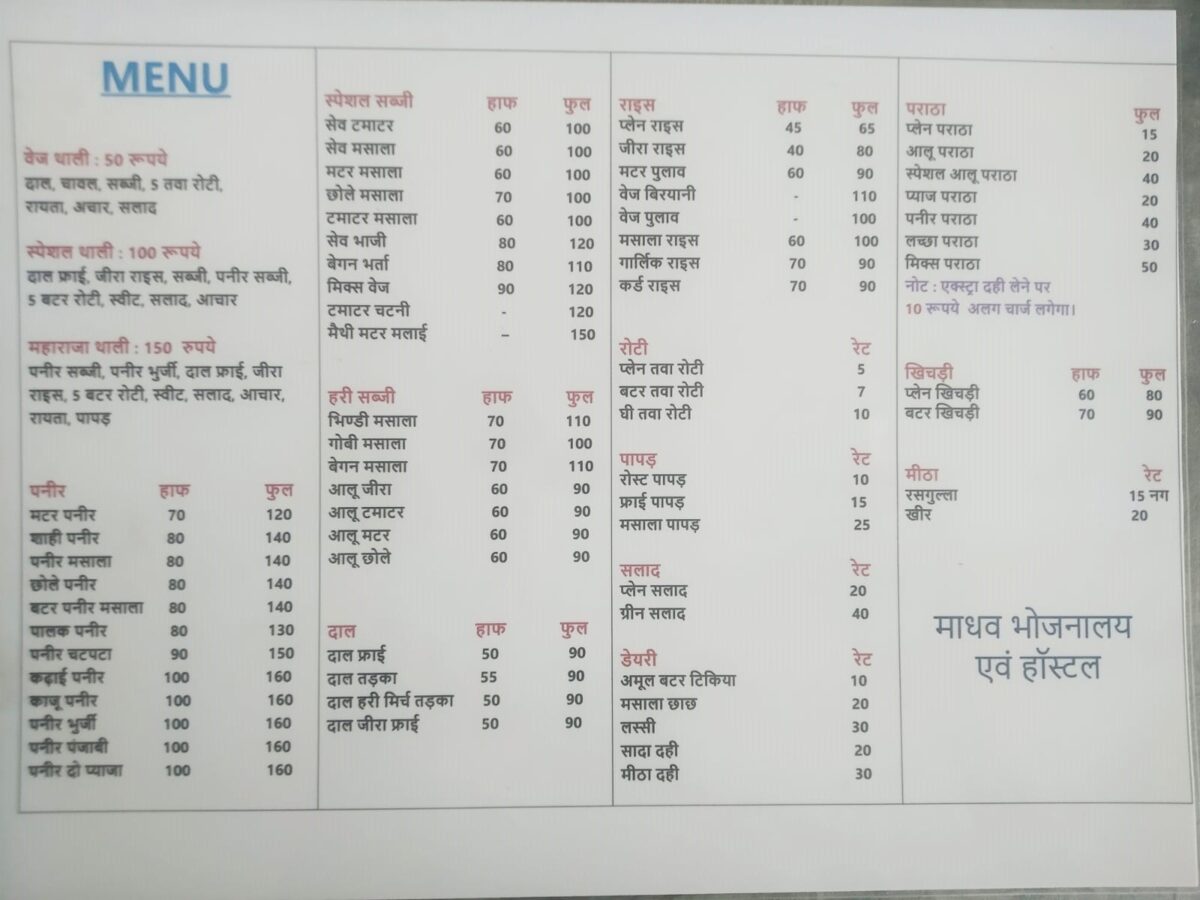 MENU
वेज थाली : 50 रूपये
दाल, चावल, सब्जी, 5 तवा रोटी,
रायता, अचार, सलाद
स्पेशल थाली : 100 रूपये
दाल फ्राई, जीरा राइस, सब्जी, पनीर सब्जी,
5 बटर रोटी, स्वीट, सलाद, आचार
महाराजा थाली : 150 रुपये
पनीर सब्जी, पनीर भुर्जी, दाल फ्राई, जीरा
राइस, 5 बटर रोटी, स्वीट, सलाद, आचार,
रायता, पापड़
पनीर हाफ फुल
मटर पनीर 70 120
शाही पनीर 80 140
पनीर मसाला 80 140
छोले पनीर 80 140
बटर पनीर मसाला 80 140
पालक पनीर 80 130
पनीर चटपटा 90 150
कढ़ाई पनीर 100 160
काजू पनीर 100 160
पनीर भुर्जी 100 160
पनीर पंजाबी 100 160
पनीर दो प्याजा 100 160
स्पेशल सब्जी हाफ फुल
सेव टमाटर 60 100
सेव मसाला 60 100
मटर मसाला 60 100
छोले मसाला 70 100
टमाटर मसाला 60 100
सेव भाजी 80 120
बेगन भर्ता 80 110
मिक्स वेज 90 120
टमाटर चटनी - 120
मैथी मटर मलाई – 150
हरी सब्जी हाफ फुल
भिण्डी मसाला 70 110
गोबी मसाला 70 100
बेगन मसाला 70 110
आलू जीरा 60 90
आलू टमाटर 60 90
आलू मटर 60 90
आलू छोले 60 90
दाल हाफ फुल
दाल फ्राई 50 90
दाल तड़का 55 90
दाल हरी मिर्च तड़का 50 90
दाल जीरा फ्राई 50 90
राइस हाफ फुल
प्लेन राइस 45 65
जीरा राइस 40 80
मटर पुलाव 60 90
वेज बिरयानी - 110
वेज पुलाव - 100
मसाला राइस 60 100
गार्लिक राइस 70 90
कर्ड राइस 70 90
रोटी रेट
प्लेन तवा रोटी 5
बटर तवा रोटी 7
घी तवा रोटी 10
पापड़ रेट
रोस्ट पापड़ 10
फ्राई पापड़ 15
मसाला पापड़ 25
सलाद रेट
प्लेन सलाद 20
ग्रीन सलाद 40
डेयरी रेट
अमूल बटर टिकिया 10
मसाला छाछ 20
लस्सी 30
सादा दही 20
मीठा दही 30
पराठा फुल
प्लेन पराठा 15
आलू पराठा 20
स्पेशल आलू पराठा 40
प्याज पराठा 20
पनीर पराठा 40
लच्छा पराठा 30
मिक्स पराठा 50
नोट : एक्स्ट्रा दही लेने पर
10 रूपये अलग चार्ज लगेगा।
खिचड़ी हाफ फुल
प्लेन खिचड़ी 60 80
बटर खिचड़ी 70 90
मीठा रेट
रसगुल्ला 15 नग
खीर 20
माधव भोजनालय
एवं हॉस्टल